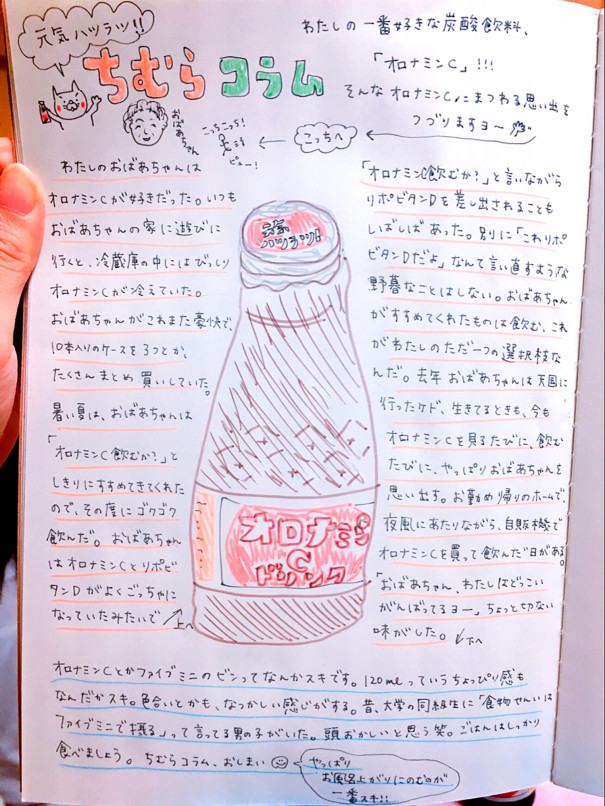 元気ハツラツ!!
ちむらコラム
わたしの一番好きな炭酸飲料、
「オロナミンC」!!!
そんなオロナミンCにまつわる思い出を
つづりますヨー
おばあちゃん
こっちこっち!
ピュー!
こっちへ
わたしのおばあちゃんは
オロナミンCが好きだった。いつも
おばあちゃんの家に遊びに
行くと、冷蔵庫の中にはびっしり
オロナミンCが冷えていた。
おばあちゃんがこれまた豪快で、
10本入りのケースを3つとか、
たくさんまとめ買いしていた。
暑い夏は、おばあちゃんは
「オロナミンC飲むか?」と
しきりにすすめてきてくれた
ので、その度にゴクゴク
飲んだ。おばあちゃん
はオロナミンCとリポビ
タンDがよくごっちゃに
なっていたみたいで
上へ
元気ハツラツ!
オロナミン
C
ドリンク
「オロナミンC飲むか?」と言いながら
リポビタンDを差し出されることも
しばしばあった。別に「これリポ
ビタンDだよ」なんて言い直すような
野暮なことはしない。おばあちゃん
がすすめてくれたものは飲む、これ
がわたしのただ一つの選択枝な
んだ。去年おばあちゃんは天国に
行ったケド、生きてるときも、今も
オロナミンCを見るたびに、飲む
たびに、やっぱりおばあちゃんを
思い出す。お勤め帰りのホームで、
夜風にあたりながら、自販機で
オロナミンCを買って飲んだ日がある。
「おばあちゃん、わたしはどうこい
がんばってるヨー」ちょっと切ない
味がした。
下へ
オロナミンCとかファイブミニのビンってなんかスキです。120mlっていうちょっぴり感も
なんだかスキ。色合いとかも、なつかしい感じがする。昔、大学の同級生に「食物せんいは
ファイブミニで摂る」って言ってる男の子がいた。頭おかしいと思う笑。ごはんはしっかり
食べましょう。ちむらコラム、おしまい
やっぱり
お風呂上がりにのむのが
一番スキ!!